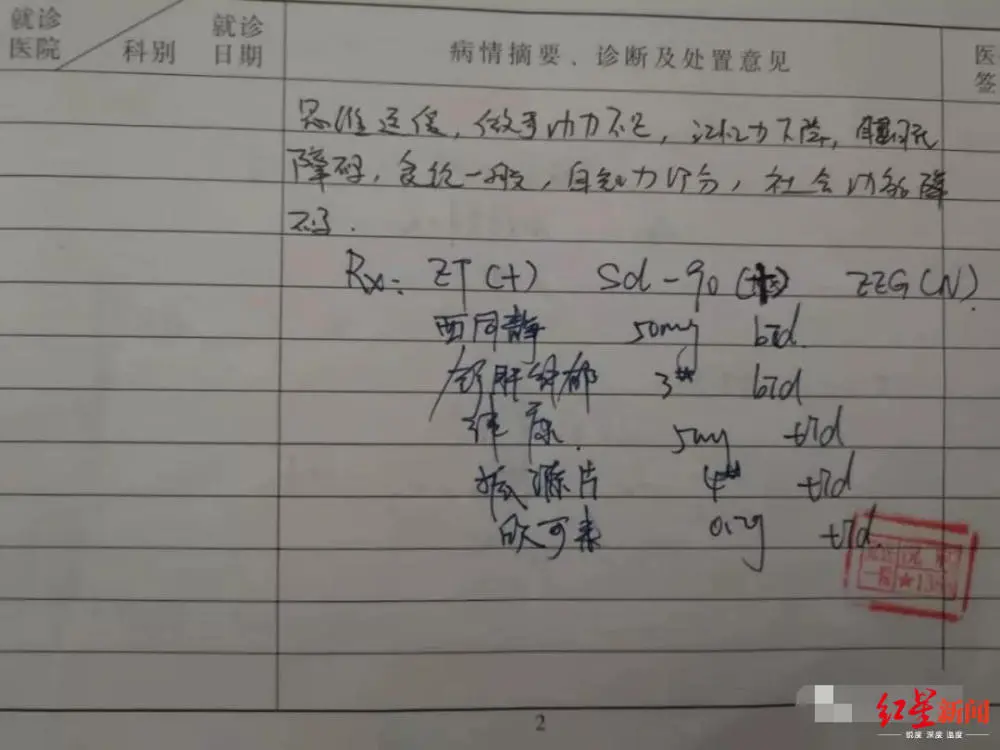 就诊
医院
科别
就诊
日期
病情摘要、诊断及处置意见
医
签
思维迟缓，做事动力不足，记忆力下降，睡眠
障碍，食纳一般，自知力部分，社会功能降
Rx: ZT(+) Sd-90 ZZG(N)
50mg bid
舒肝解郁 3# bid
律康 5mg tid
片 4# tid
欣可来 0.2g tid
2
红星新闻
锐度 深度 温度